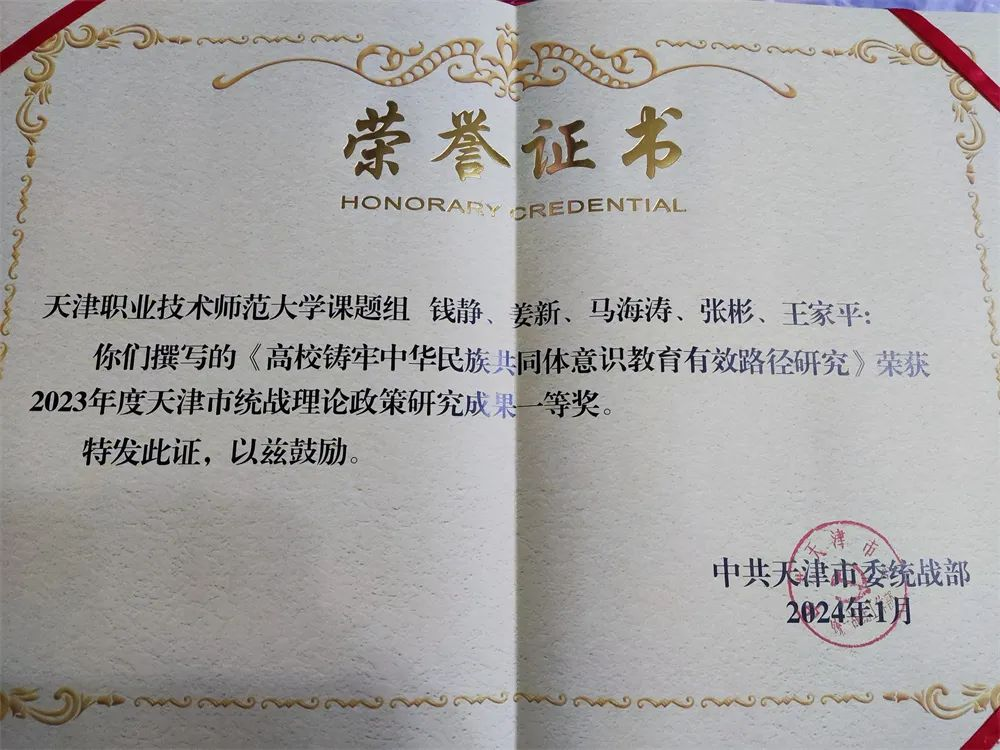 荣誉证书
HONORARY CREDENTIAL
天津职业技术师范大学课题组 钱静、姜新、马海涛、张彬、王家平:
你们撰写的《高校铸牢中华民族共同体意识教育有效路径研究》荣获
2023年度天津市统战理论政策研究成果一等奖。
特发此证，以兹鼓励。
天津市
中共天津市委统战部
2024年1月